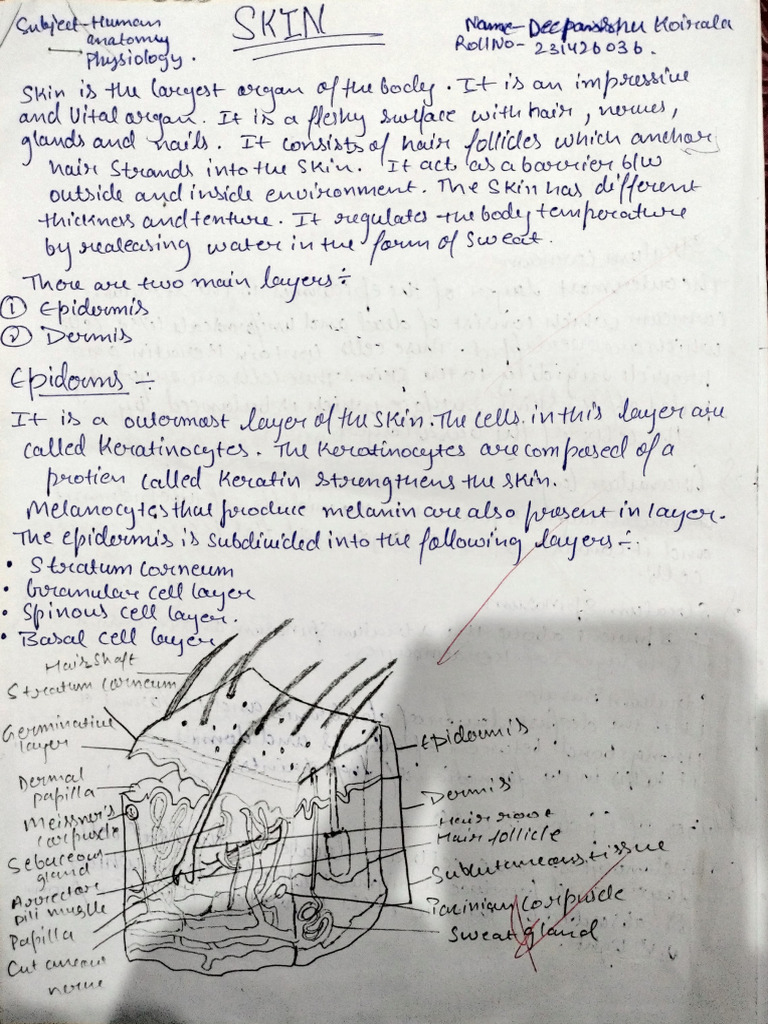 Subject-Human
anatomy
Physiology.
SKIN
Name- Deepanshu Koirala
RollNo- 231426036.
Skin is the largest organ of the body. It is an impressive
and Vital organ. It is a fleshy surface with hair, nerves,
glands and nails. It consists of hair follicles which anchor
hair Strands into the Skin. It act as a barrier b/w
outside and inside environment. The Skin has different
thickness and tenture. It regulates the body temperature
by realeasing water in the form of Sweat.
There are two main layers÷
① Epidermis
② Dermis
Epiderms –
It is a outermost layer of the Skin. The cells in this layer are
called Keratinocytes. The Keratinocytes are composed of a
protien called Keratin strengthens the skin.
Melanocytes that produce melanin are also present in layer.
The epidermis is Subdivided into the following layers÷
• Stratum Corneum
• Granular cell layer
• Spinous cell layer.
• Basal cell layer
Hair Shaft
Stratum corneum
Germinative
layer
Dermal
papilla
Meissner's
Corpuscle
Sebaceous
gland
Arrector
pili muscle
Papilla
Cutaneous
nerve
Epidermis
Dermis
Hair root
Hair follicle
Subcutaneous tissue
Pacinian Corpuscle
Sweat gland